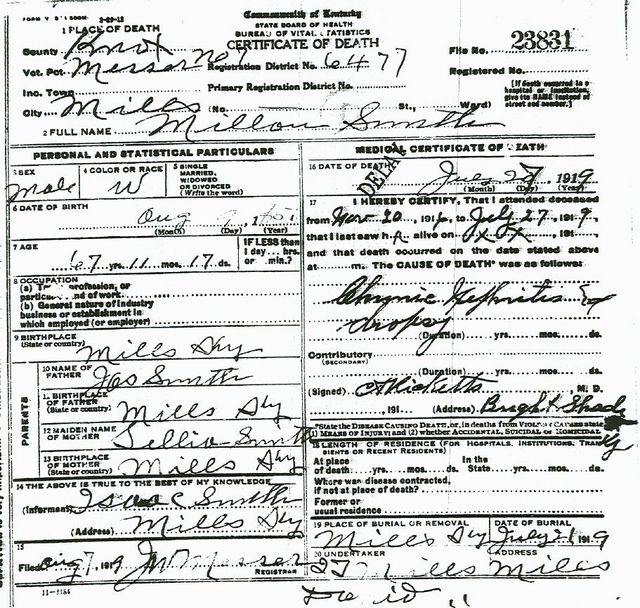 Commonwealth of Kentucky
STATE BOARD OF HEALTH
BUREAU OF VITAL STATISTICS
CERTIFICATE OF DEATH
1 PLACE OF DEATH
County Knox
File No. 23831
Vot. Pct. Messer No
Registration District No. 6477
Registered No.
Inc. Town
Primary Registration District No.
[If death occurred in a hospital or institution, give its NAME instead of street and number.]
City Mills (No. St., Ward)
2 FULL NAME Smith
PERSONAL AND STATISTICAL PARTICULARS
3 SEX Male
4 COLOR OR RACE W
5 SINGLE MARRIED, WIDOWED OR DIVORCED (Write the word)
6 DATE OF BIRTH Aug
(Month) (Day) (Year)
7 AGE 67 yrs. 11 mos. 17 ds.
IF LESS than 1 day... hrs. or min.?
8 OCCUPATION
(a) profession, or
particular kind of work
(b) General nature of industry
business or establishment in
which employed (or employer)
9 BIRTHPLACE
(State or country) Mills Ky
PARENTS
10 NAME OF FATHER Jos Smith
11. BIRTHPLACE OF FATHER
(State or country) Mills Ky
12 MAIDEN NAME OF MOTHER Smith
13 BIRTHPLACE OF MOTHER
(State or country) Mills Ky
14 THE ABOVE IS TRUE TO THE BEST OF MY KNOWLEDGE
(Informant) Isaac Smith
(Address) Mills Ky
15
Filed Aug 7, 1919 Messer
REGISTRAR
11-3184
MEDICAL CERTIFICATE OF DEATH
DELAY
16 DATE OF DEATH July 27 1919
(Month) (Day) (Year)
17 I HEREBY CERTIFY, That I attended deceased
from Nov. 20, 1916, to July 27, 1919,
that I last saw h alive on X X, 191
and that death occurred on the date stated above
at m. The CAUSE OF DEATH* was as follows:
Chronic Nephritis &
dropsy
(Duration) yrs. mos. ds.
Contributory
(SECONDARY)
(Duration) yrs. mos. ds.
(Signed) Ricketts, M. D.
, 191 (Address) Bright Shade
Ky
*State the DISEASE CAUSING DEATH, or, in deaths from VIOLENT CAUSES state
(1) MEANS OF INJURY; and (2) whether ACCIDENTAL, SUICIDAL or HOMICIDAL
18 LENGTH OF RESIDENCE (FOR HOSPITALS, INSTITUTIONS, TRANSIENTS OR RECENT RESIDENTS)
At place of death yrs. mos. ds.
In the State yrs. mos. ds.
Where was disease contracted,
if not at place of death?
Former or
usual residence
19 PLACE OF BURIAL OR REMOVAL Mills Ky
DATE OF BURIAL July 21 1919
20 UNDERTAKER Mills
ADDRESS Mills